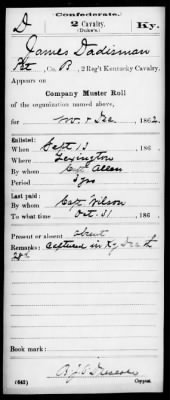 Confederate.
D 2 Cavalry. Ky.
(Duke's.)
James Dadisman
Pvt, Co. B, 2 Reg't Kentucky Cavalry.
Appears on
Company Muster Roll
of the organization named above,
for Nov. & Dec, 1862.
Enlisted:
When Sept 13, 186 .
Where Lexington
By whom Capt Allen
Period 3 yrs
Last paid:
By whom Capt Wilson
To what time Oct. 31, 186 .
Present or absent absent
Remarks: Captured in Ky Dec th
28th
Book mark:
(642) Copyist.